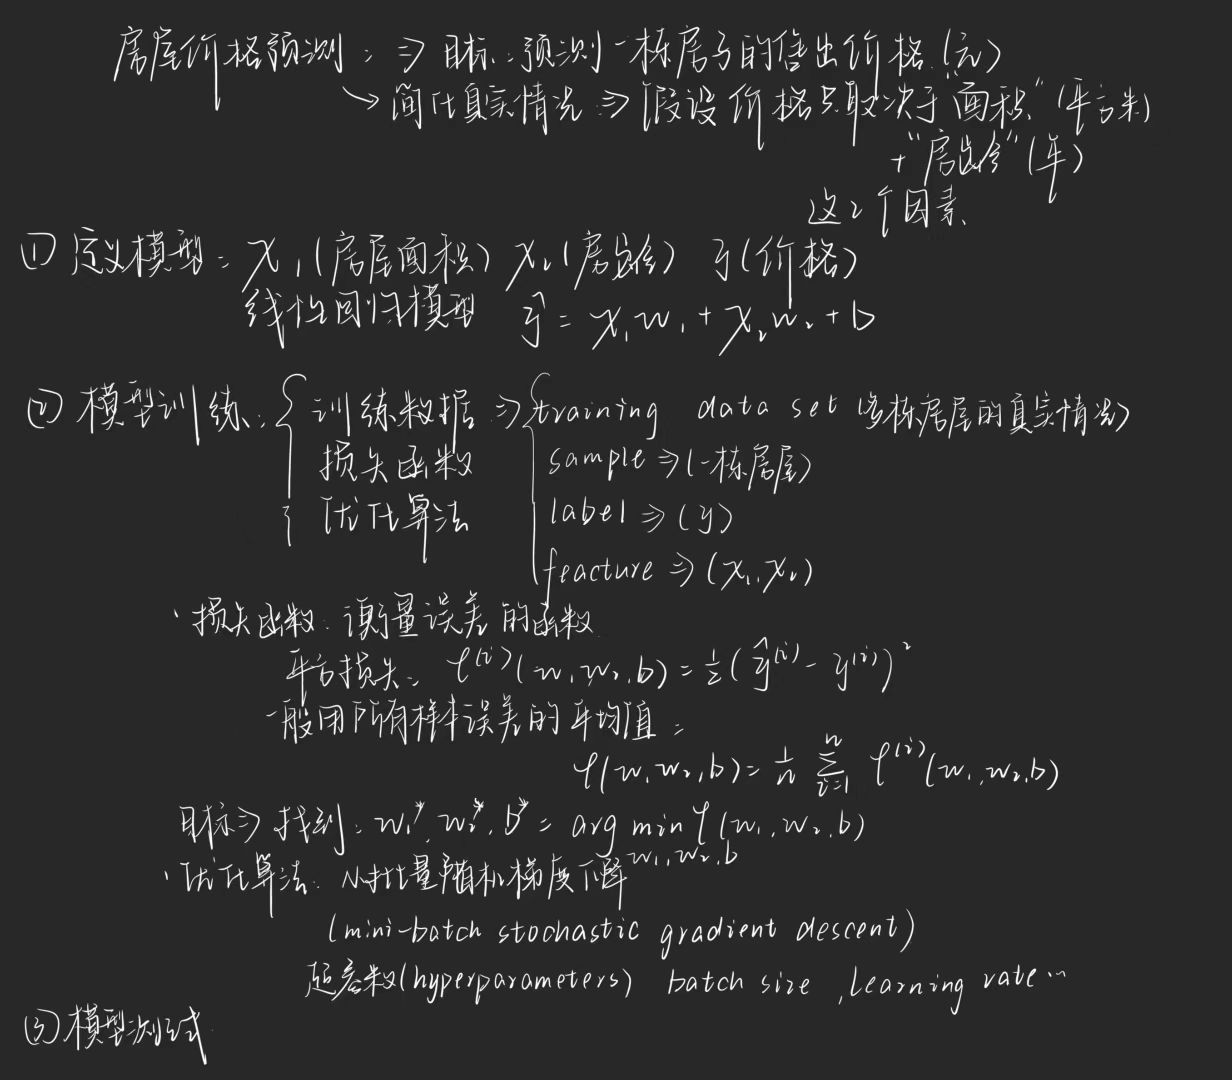 房屋价格预测: ⇒ 目标: 预测一栋房子的售出价格(元)
↘ 简化真实情况 ⇒ 假设价格只取决于"面积"(平方米)
+"房龄"(年)
这2个因素
(1) 定义模型: x₁(房屋面积) x₂(房龄) y(价格)
线性回归模型 ŷ = x₁w₁ + x₂w₂ + b
(2) 模型训练: { 训练数据 ⇒ { training data set (多栋房屋的真实情况)
损失函数 sample ⇒ (一栋房屋)
优化算法 label ⇒ (y)
feacture ⇒ (x₁, x₂)
· 损失函数: 衡量误差的函数
平方损失: ℓ⁽ⁱ⁾(w₁, w₂, b) = ½(ŷ⁽ⁱ⁾ - y⁽ⁱ⁾)²
一般用所有样本误差的平均值:
ℓ(w₁, w₂, b) = 1/n ∑ⁿᵢ₌₁ ℓ⁽ⁱ⁾(w₁, w₂, b)
目标⇒ 找到: w₁*, w₂*, b* = arg min ℓ(w₁, w₂, b)
w₁, w₂, b
· 优化算法: 小批量随机梯度下降
(mini-batch stochastic gradient descent)
超参数(hyperparameters) batch size, learning rate…
(3) 模型测试